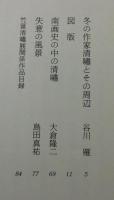 冬の作家清曠とその周辺　谷川 徹　5
図版　11
南画史の中の清曠　大倉隆二　69
失意の風景　島田真祐　77
竹冨清嘯展関係作品目録　84